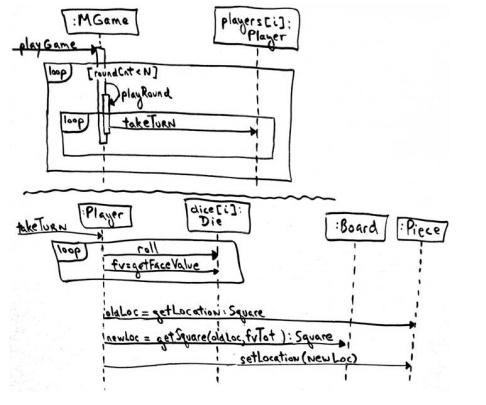 :MGame
players[i]:
Player
playGame
loop
[roundCnt<N]
playRound
loop
takeTurn
takeTurn
:Player
dice[i]:
Die
:Board
:Piece
loop
roll
fv=getFaceValue
oldLoc = getLocation : Square
newLoc = getSquare(oldLoc, fvTot) : Square
setLocation(newLoc)